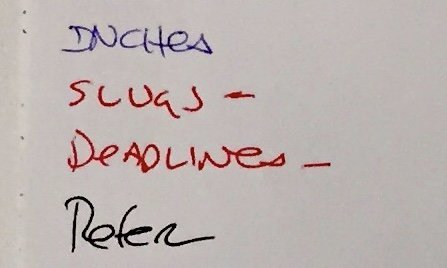 INCHes
SLUGS -
DeADLINes -
Refer